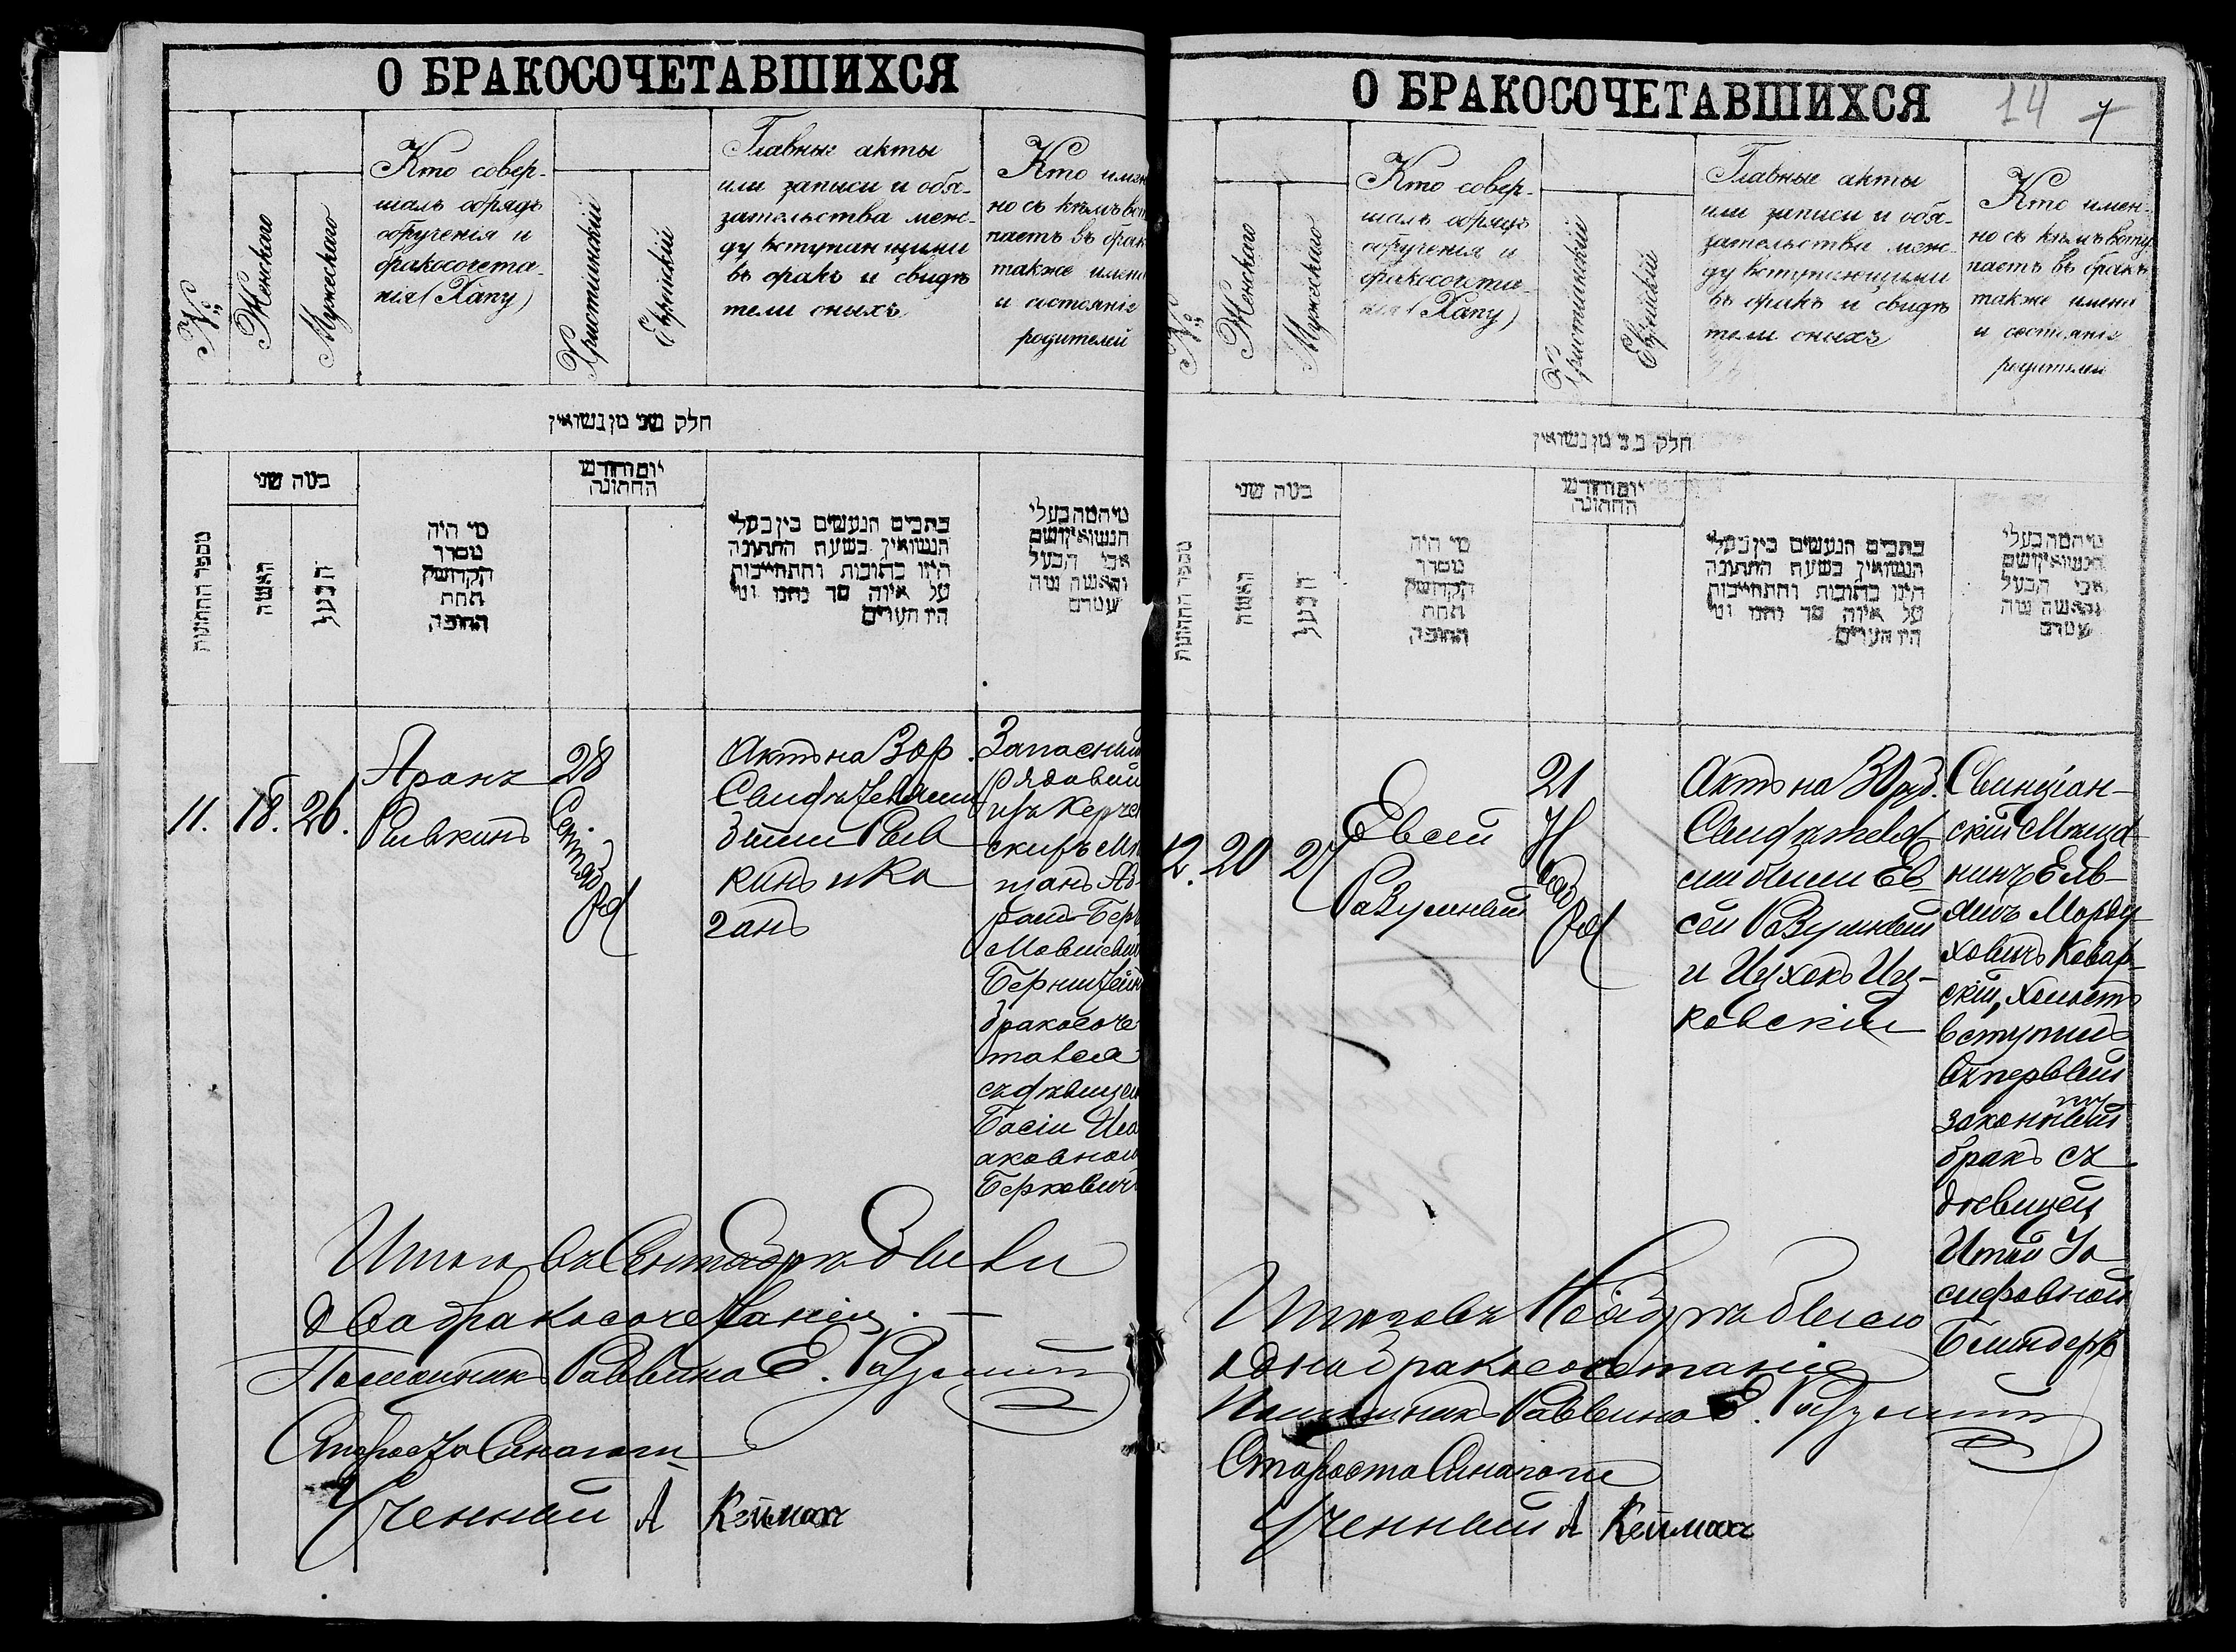 О БРАКОСОЧЕТАВШИХСЯ
№
Женскаго
Мужескаго
Кто совер-
шалъ обрядъ
обрученія и
бракосочета-
нія (Хапу)
Христіанскій
Еврейскій
Главные акты
или записи и обя-
зательства меж-
ду вступающими
въ бракъ и свидѣ
тели оныхъ
Кто имен
но съ кѣмъ вст
паетъ въ брак
также имена
и состояніе
родителей
חלק שני מן נשואין
מספר החתונות
במה שני
האשה
הבעל
מי היה
מסדר
הקדושין
תחת
החופה
יום וחודש
החתונה
כתבים הנעשים בין בעלי
הנשואין בשעת החתונה
היו כתובות והתחייבות
על איזה סך נתנו ומי
היו העדים
מי המה בעלי
הנשואין ושם
אבי הבעל
והאשה מה
11.
18.
26.
Аронъ
Рывкинъ
28
Сентяб
ря
Актъ на 30 р.
Свидѣтелями
были Рыв
кинъ и Ка
ганъ
Запасный
рядовой
изъ Керчен
скихъ Мѣ
щанъ Аб
рамъ-Беръ
Мовшевич
Бернштейн
бракосоче
тался
съ дѣвицею
Басіи Иса
аковной
Беркович
Итого въ Сентябрѣ были
два бракосочетанія. —
Помощникъ Раввина Е. Разумный
Староста Синагоги
Ученный А Кеймахъ
О БРАКОСОЧЕТАВШИХСЯ
14 7
№
Женскаго
Мужескаго
Кто совер-
шалъ обрядъ
обрученія и
бракосочета-
нія (Хапу)
Христіанскій
Еврейскій
Главные акты
или записи и обя-
зательства меж-
ду вступающими
въ бракъ и свидѣ
тели оныхъ
Кто имен-
но съ кѣмъ всту
паетъ въ бракъ
также имена
и состояніе
родителей
מן נשואין
מספר החתונות
במה שני
האשה
הבעל
מי היה
מסדר
הקדושין
תחת
החופה
יום וחודש
החתונה
כתבים הנעשים בין בעלי
הנשואין בשעת החתונה
היו כתובות והתחייבות
על איזה סך נתנו ומי
היו העדים
מי המה בעלי
הנשואין ושם
אבי הבעל
והאשה מה
12.
20
27
Евсей
Разумный
21
Нояб
ря
Актъ на 30 руб.
Свидѣтеля
ми были Ев-
сей Разумный
и Ицхокъ Иц-
ковскій
Свинцян-
скій Мѣща-
нинъ Ель-
яшъ Морду-
ховичъ Ковар-
скій, холостъ
вступилъ
въ первый
законный
бракъ съ
дѣвицей
Итой Іо
сифовной
Блиндеръ
Итого въ Ноябрѣ было
одно бракосочетаніе
Помощникъ Раввина Е. Разумный
Староста Синагоги
Ученный А Кеймахъ